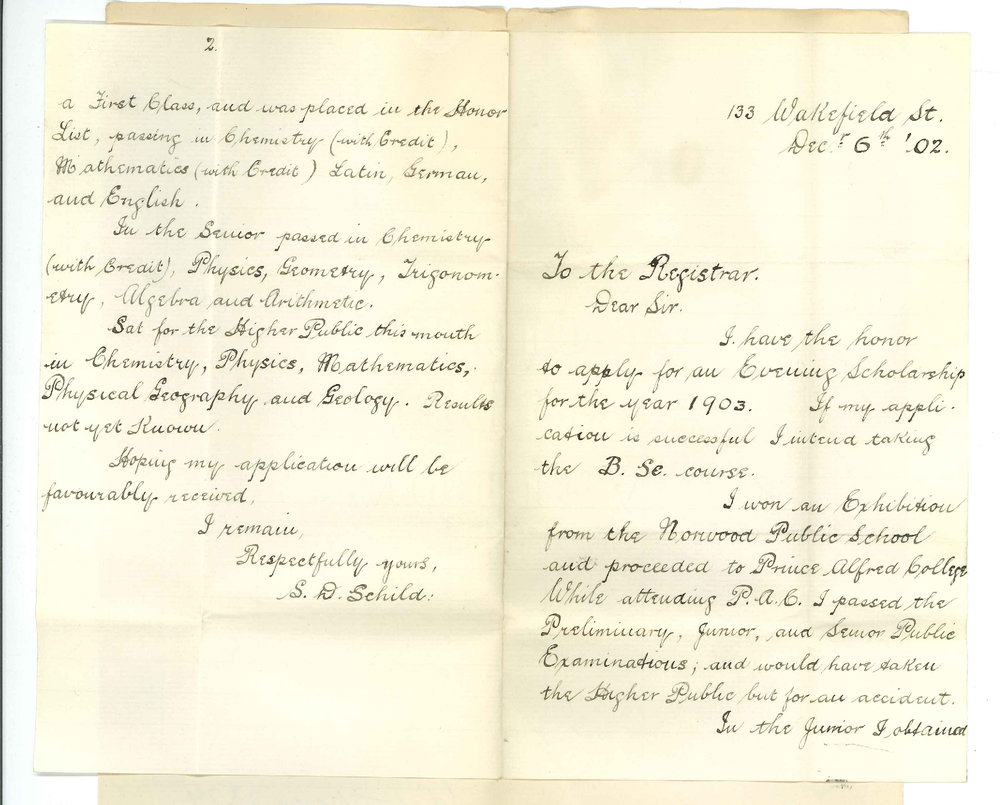 133 Wakefield St.
Decr 6th '02.
To the Registrar.
Dear Sir.
I have the honor
to apply for an Evening Scholarship
for the year 1903. If my appli-
cation is successful I intend taking
the B. Sc. course.
I won an Exhibition
from the Norwood Public School
and proceeded to Prince Alfred College
While attending P.A.C. I passed the
Preliminary, Junior, and Senior Public
Examinations; and would have taken
the Higher Public but for an accident.
In the Junior I obtained
2.
a First Class, and was placed in the Honor
List, passing in Chemistry (with Credit),
Mathematics (with Credit) Latin, German,
and English.
In the Senior passed in Chemistry
(with Credit), Physics, Geometry, Trigonom-
etry, Algebra and Arithmetic.
Sat for the Higher Public this month
in Chemistry, Physics, Mathematics,
Physical Geography and Geology. Results
not yet Known.
Hoping my application will be
favourably received,
I remain,
Respectfully yours,
S. D. Schild.